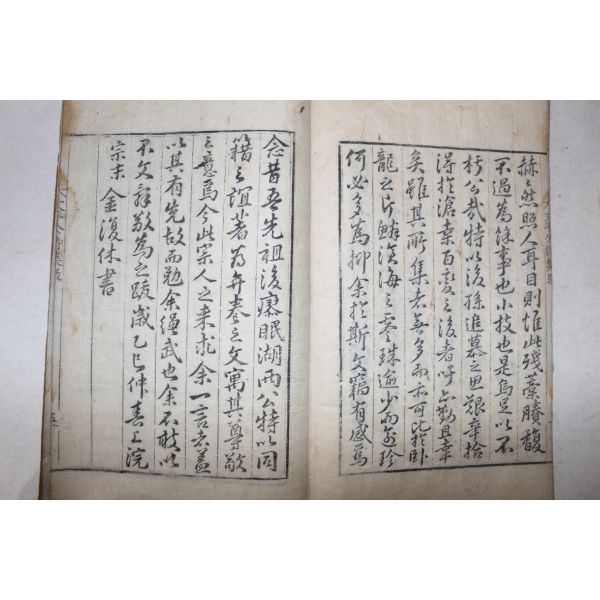 赫然照人耳目則惟此殘藁賸馥
不過為餘事也小技也是烏足以不
朽公哉特以後孫追慕之思艱辛拾
得於滄桑百變之後者呼亦勤且幸
矣雖其所集者無多而亦可比於臥
龍之片鱗滄海之零珠逾少而逾珍
何必多為抑余於斯文竊有感焉
念昔吾先祖後 眠湖兩公特以同
籍之誼著為弁卷之文寓其尊敬
之意焉今此宗人之来求余一言者盖
以其有先故而勉余繩武也余不敢以
不文辭敬為之跋歲乙巳仲春上浣
宗末 金復休書